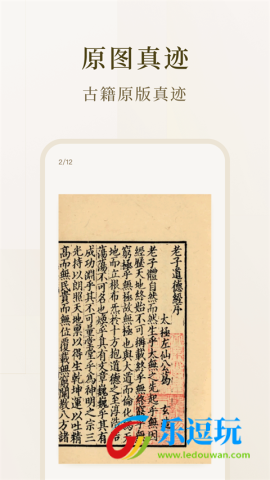 原图真迹
古籍原版真迹
2/12
老子道德經序
太極左仙公葛 玄
老子體自然而然生乎太無之先起乎無因
經歷天地終始不可稱載終乎無終窮乎無
窮極乎無極故無極也與大道而倫化為天
地而立根布炁於十方抱道德之至淳浩浩
蕩蕩不可名也煥乎其有文章巍巍乎其有
成功淵乎其不可量堂堂乎為神明之宗三
光持以朗照天地稟以得生乾坤運以吐精
高而無民貴而無位覆載無窮闡教八方諸
乐逗玩
www.ledouwan.com